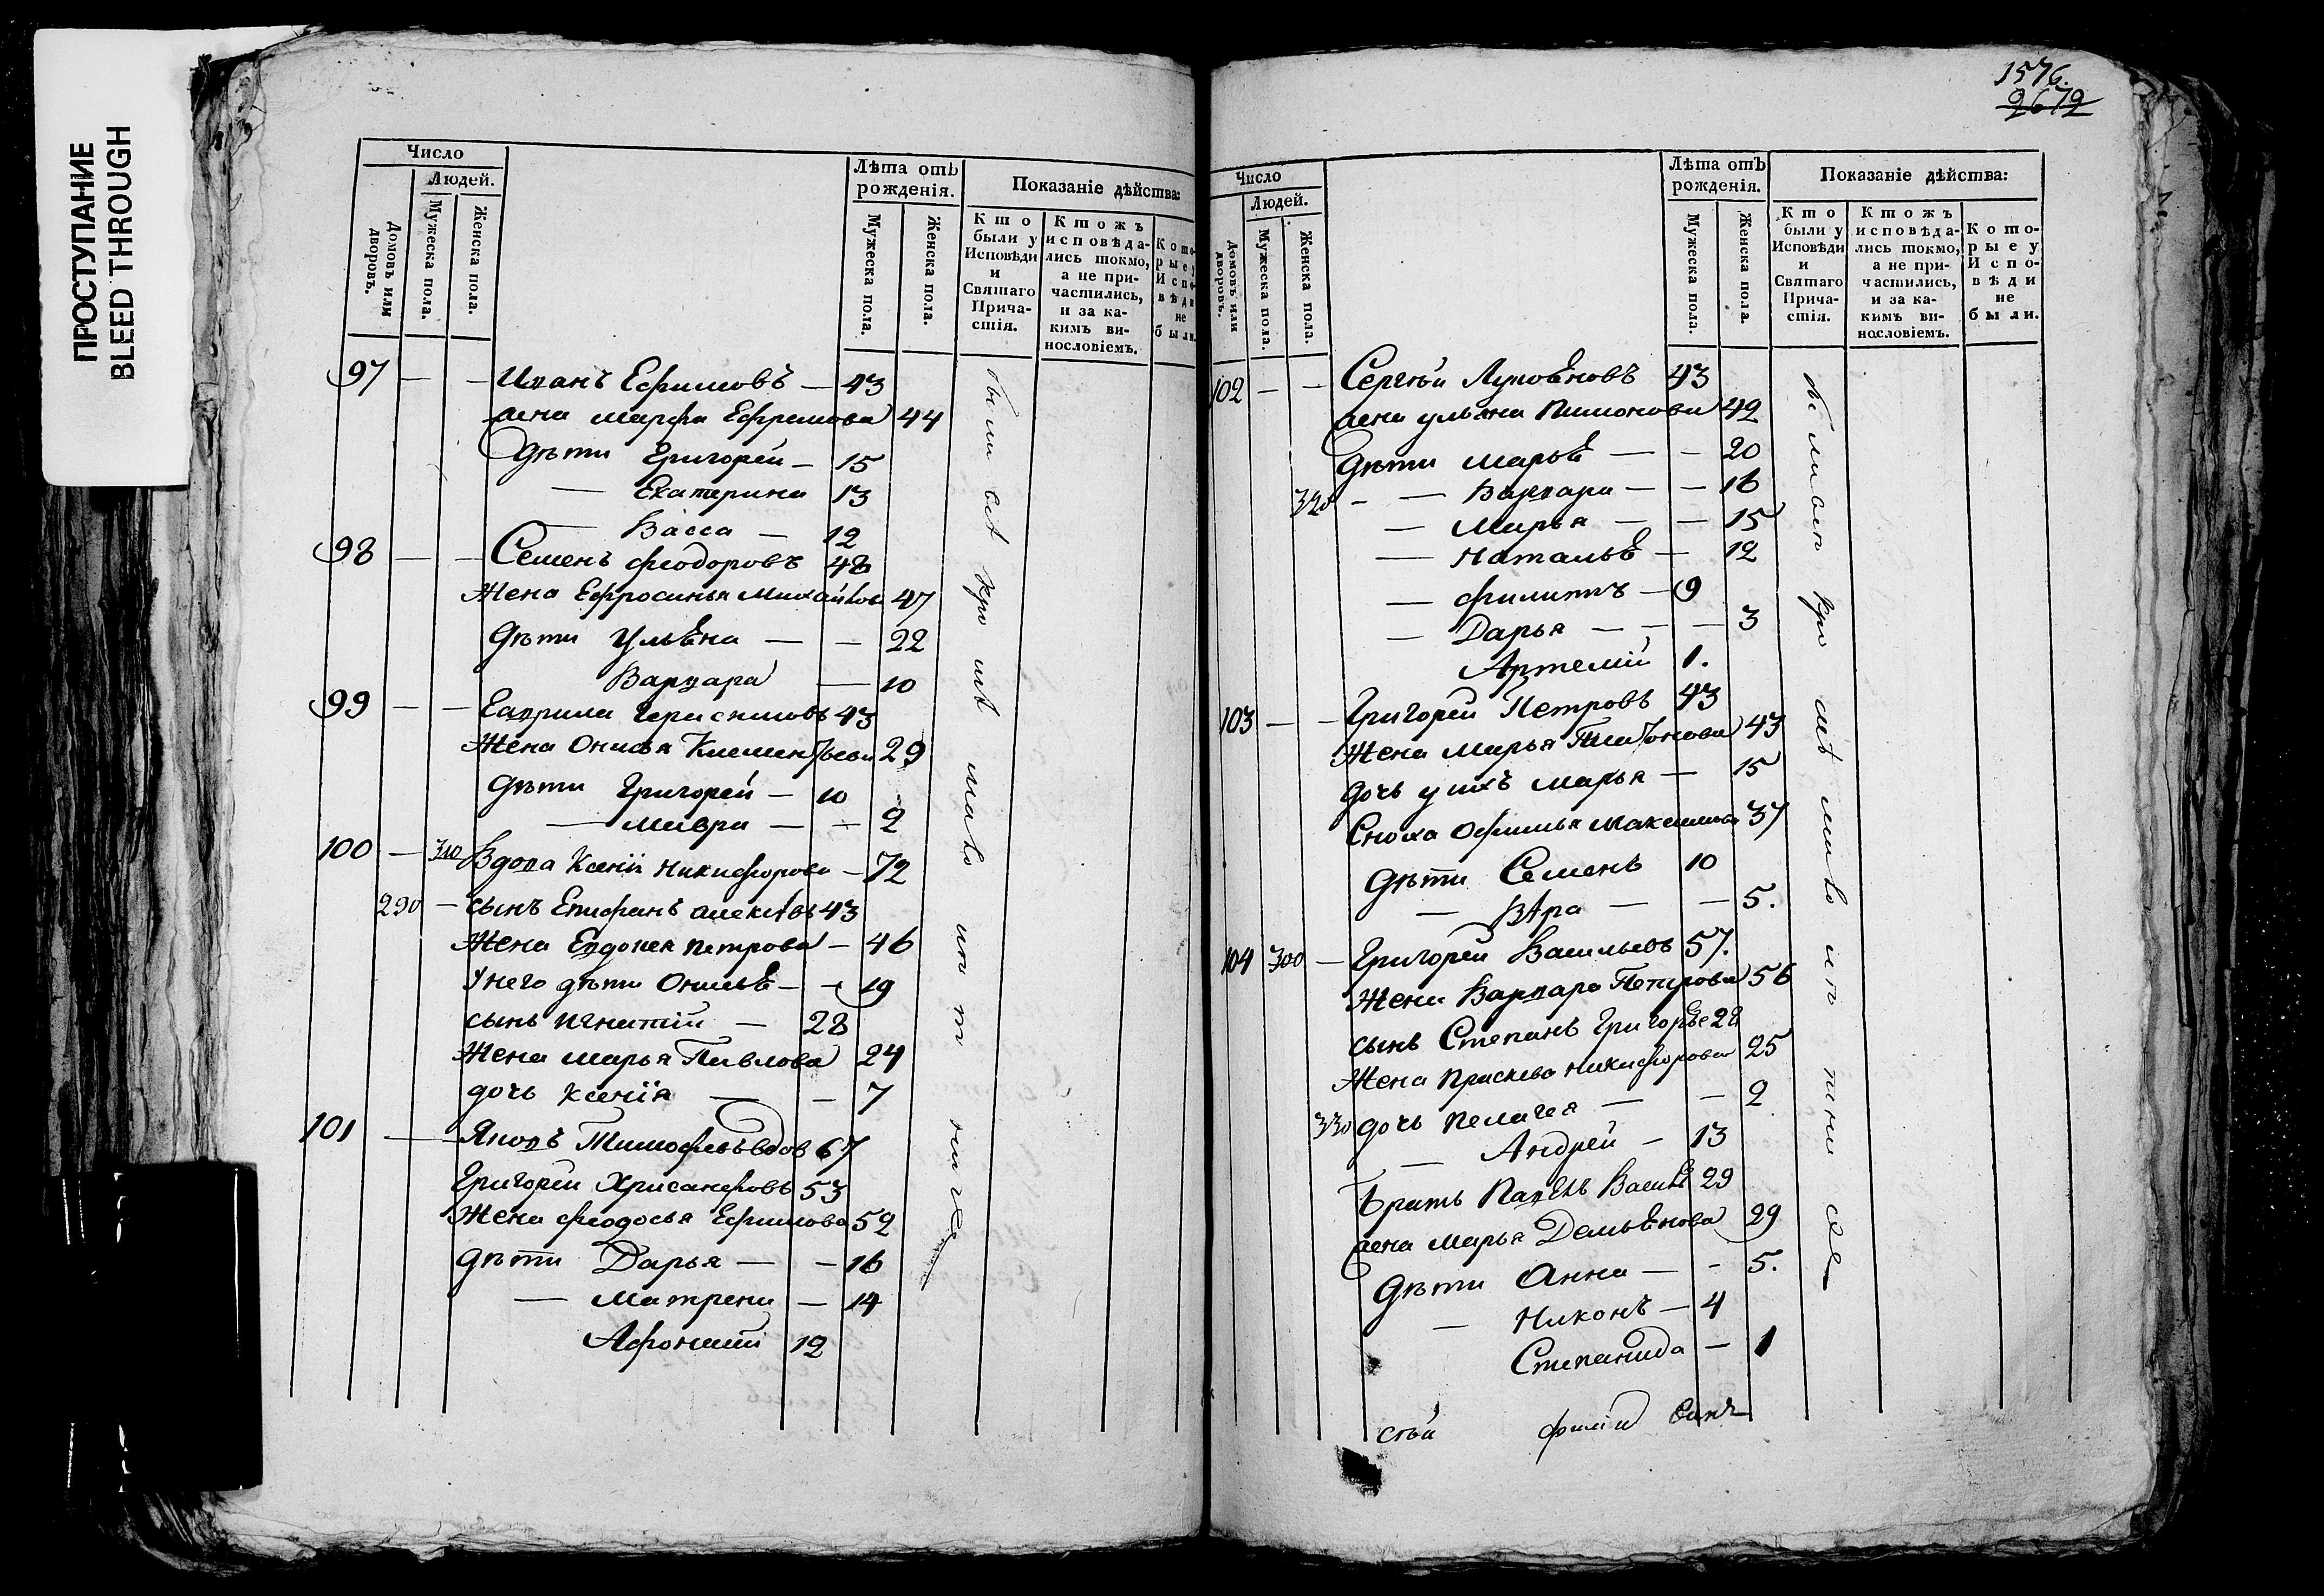 ПРОСТУПАНИЕ
BLEED THROUGH
Число
Людей.
Домовъ или дворовъ.
Мужеска пола.
Женска пола.
Лѣта отъ рожденія.
Мужеска пола.
Женска пола.
Показаніе дѣйства:
Кто были у Исповѣди и Святаго Причастія.
Ктожъ исповѣдались токмо, а не причастились, и за какимъ винословіемъ.
Которые у Исповѣди не были.
97 — — Иванъ Ефимовъ — 43
жена марфа Ефремова 44
дѣти Григорей — 15
— Екатерина 13
— Васса — 12
98 — — Семенъ феодоровъ 48
Жена Ефросинья 47
дѣти Ульяна — — 22
Варвара — 10
99 — — Гаврила 43
Жена Онисья 29
дѣти Григорей — 10
— мавра — — 2
100 — 310 Вдова Ксенія Никифорова — 72
290 — сынъ Епифанъ 43
Жена Евдокея петрова — 46
У него дѣти — — 19
сынъ игнатій — 28
Жена марья Павлова 24
дочь ксенія — — 7
101 — — Яковъ вдов 67
Григорей Хрисанфовъ 53
Жена феодосья Ефимова 52
дѣти Дарья — — 16
— матрена — 14
Афонасий 12
1576.
2672
Число
Людей.
Домовъ или дворовъ.
Мужеска пола.
Женска пола.
Лѣта отъ рожденія.
Мужеска пола.
Женска пола.
Показаніе дѣйства:
Кто были у Исповѣди и Святаго Причастія.
Ктожъ исповѣдались токмо, а не причастились, и за какимъ винословіемъ.
Которые у Исповѣди не были.
102 — — Сергѣй 43
жена ульяна 42
дѣти марья — — 20
320 — — Варвара — — 16
— Марья — — 15
— Наталья — 12
— филипъ — 9
— Дарья — — — 3
Артемій 1.
103 — — Григорей Петровъ 43
Жена Марья 43
дочь у ихъ марья — 15
Сноха 37
дѣти Семенъ 10
— Вѣра — — 5.
104 300 — Григорей Васильевъ 57.
Жена Варвара Петрова 56
сынъ Степанъ 28
Жена прасковa Никифорова 25
330 дочь пелагея — — 2
— Андрей — 13
братъ Павелъ 29
жена марья Демьянова 29
дѣти Анна — — 5.
— Никонъ — 4
Степанида — 1